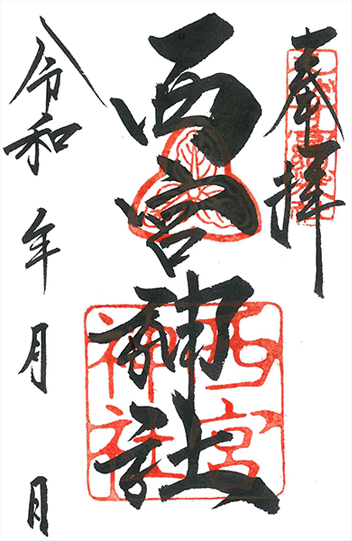 奉拝
西宮神社
西宮
神社
令和 年 月 日